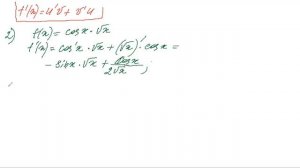 f'(x) = u'v + v'u
2) f(x) = cosx · √x
f'(x) = cos'x · √x + (√x)' · cosx =
- sinx · √x + cosx / 2√x ;